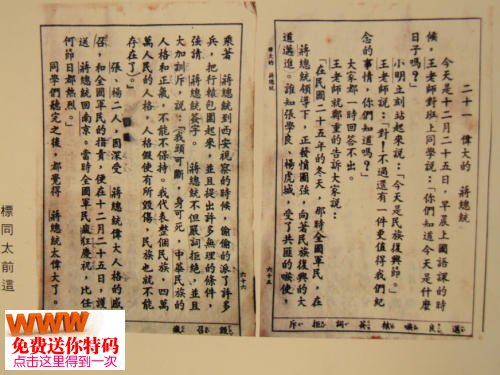 二十一　偉大的　蔣總統
今天是十二月二十五日，早晨上國語課的時
候，王老師對班上同學說：「你們知道今天是什麼
日子嗎？」
小明立刻站起來說：「今天是民族復興節。」
王老師說：「對！不過還有一件更值得我們紀
念的事情，你們知道嗎？」
大家都一時回答不出。
王老師就鄭重的告訴大家說：
「在民國二十五年的冬天，那時全國軍民，在
蔣總統領導下，正發憤圖強，向著民族復興的大
道邁進。誰知張學良、楊虎城，受了共匪的嗾使，
偉大的　蔣總統
六十五
六十六
乘著　蔣總統到西安視察的時候，偷偷的派了許多
兵，把行轅包圍起來，並且提出許多無理的條件，
強請　蔣總統簽字。　蔣總統不但嚴詞拒絕，並且
大加訓斥，說：「我頭可斷，身可死，中華民族的
人格和正氣，不能不保持。我代表整個民族，四萬
萬人民的人格，人格假使有所毀傷，民族也就不能
存在了。」
張、楊二人，因深受　蔣總統偉大人格的感
召，和全國軍民的指責，便在十二月二十五日，護
送　蔣總統回南京。當時全國軍民瘋狂慶祝，比任
何節日都熱烈。」
同學們聽完之後，都覺得　蔣總統太偉大了。
標同太前這
WWW
免费送你特码
点击这里得到一次